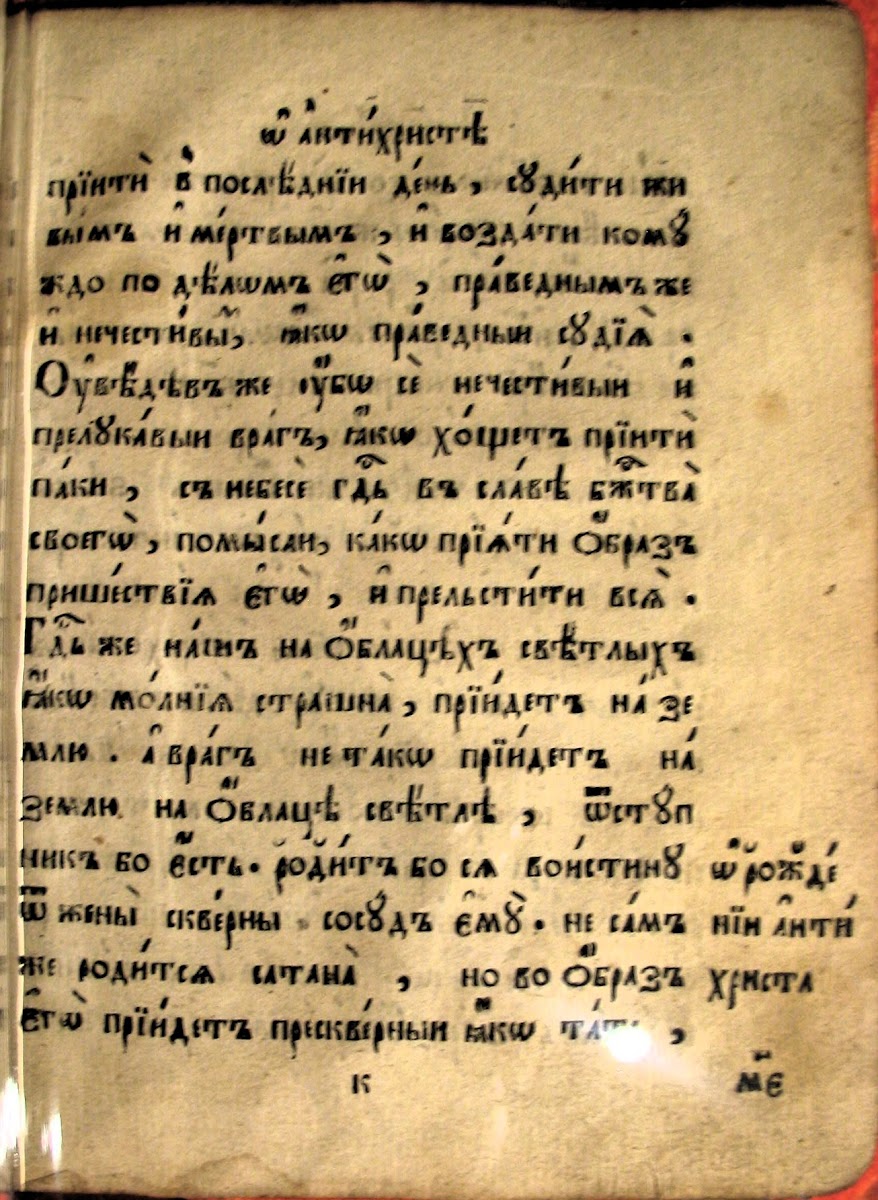 ѡ҆ а҆нти́христѣ
прїитѝ в̾ послѣ́днїи де́нь, суди́ти жи
вы́мъ и҆ ме́ртвымъ, и҆ возда́ти кому́
ждо по дѣ́лѡмъ є҆гѡ̀, пра́веднымъ же
и҆ нечести́вы̑, ꙗ҆́кѡ пра́ведныи судїѧ̀.
Оу҆вѣ́дѣвъ же оу҆́бѡ сѐ нечести́выи и҆
прелука́выи вра́гъ, ꙗ҆́кѡ хо́щетъ прїитѝ
па́ки, съ небесѐ гдⷭ҇ь въ сла́вѣ бж҇тва̀
своегѡ̀, помы́сли, ка́кѡ прїѧ́ти Ѻ҆́бразъ
прише́ствїѧ є҆гѡ̀, и҆ прельсти́ти всѧ̀.
Гдⷭ҇ь же на́шъ на Ѻ҆́блацѣхъ свѣ́тлыхъ
ꙗ҆́кѡ мо́лнїѧ страшна̀, прїи́детъ на́ зе
млю. а҆ вра́гъ не та́кѡ прїи́детъ на́
землю на Ѻ҆́блацѣ свѣ́тлѣ, ѿступ
никъ бо є҆́сть. роди́тъ бо сѧ вои́стину
ѿ жены̀ скве́рны сосу́дъ є҆му̀. не са́мъ
же роди́тсѧ сатана̀, но во Ѻ҆́бразъ
є҆гѡ̀ прїи́детъ прескве́рныи ꙗ҆́кѡ та́ть,
ѡ҆ рожде́
нїи а҆нти́
христа
к
м҃є